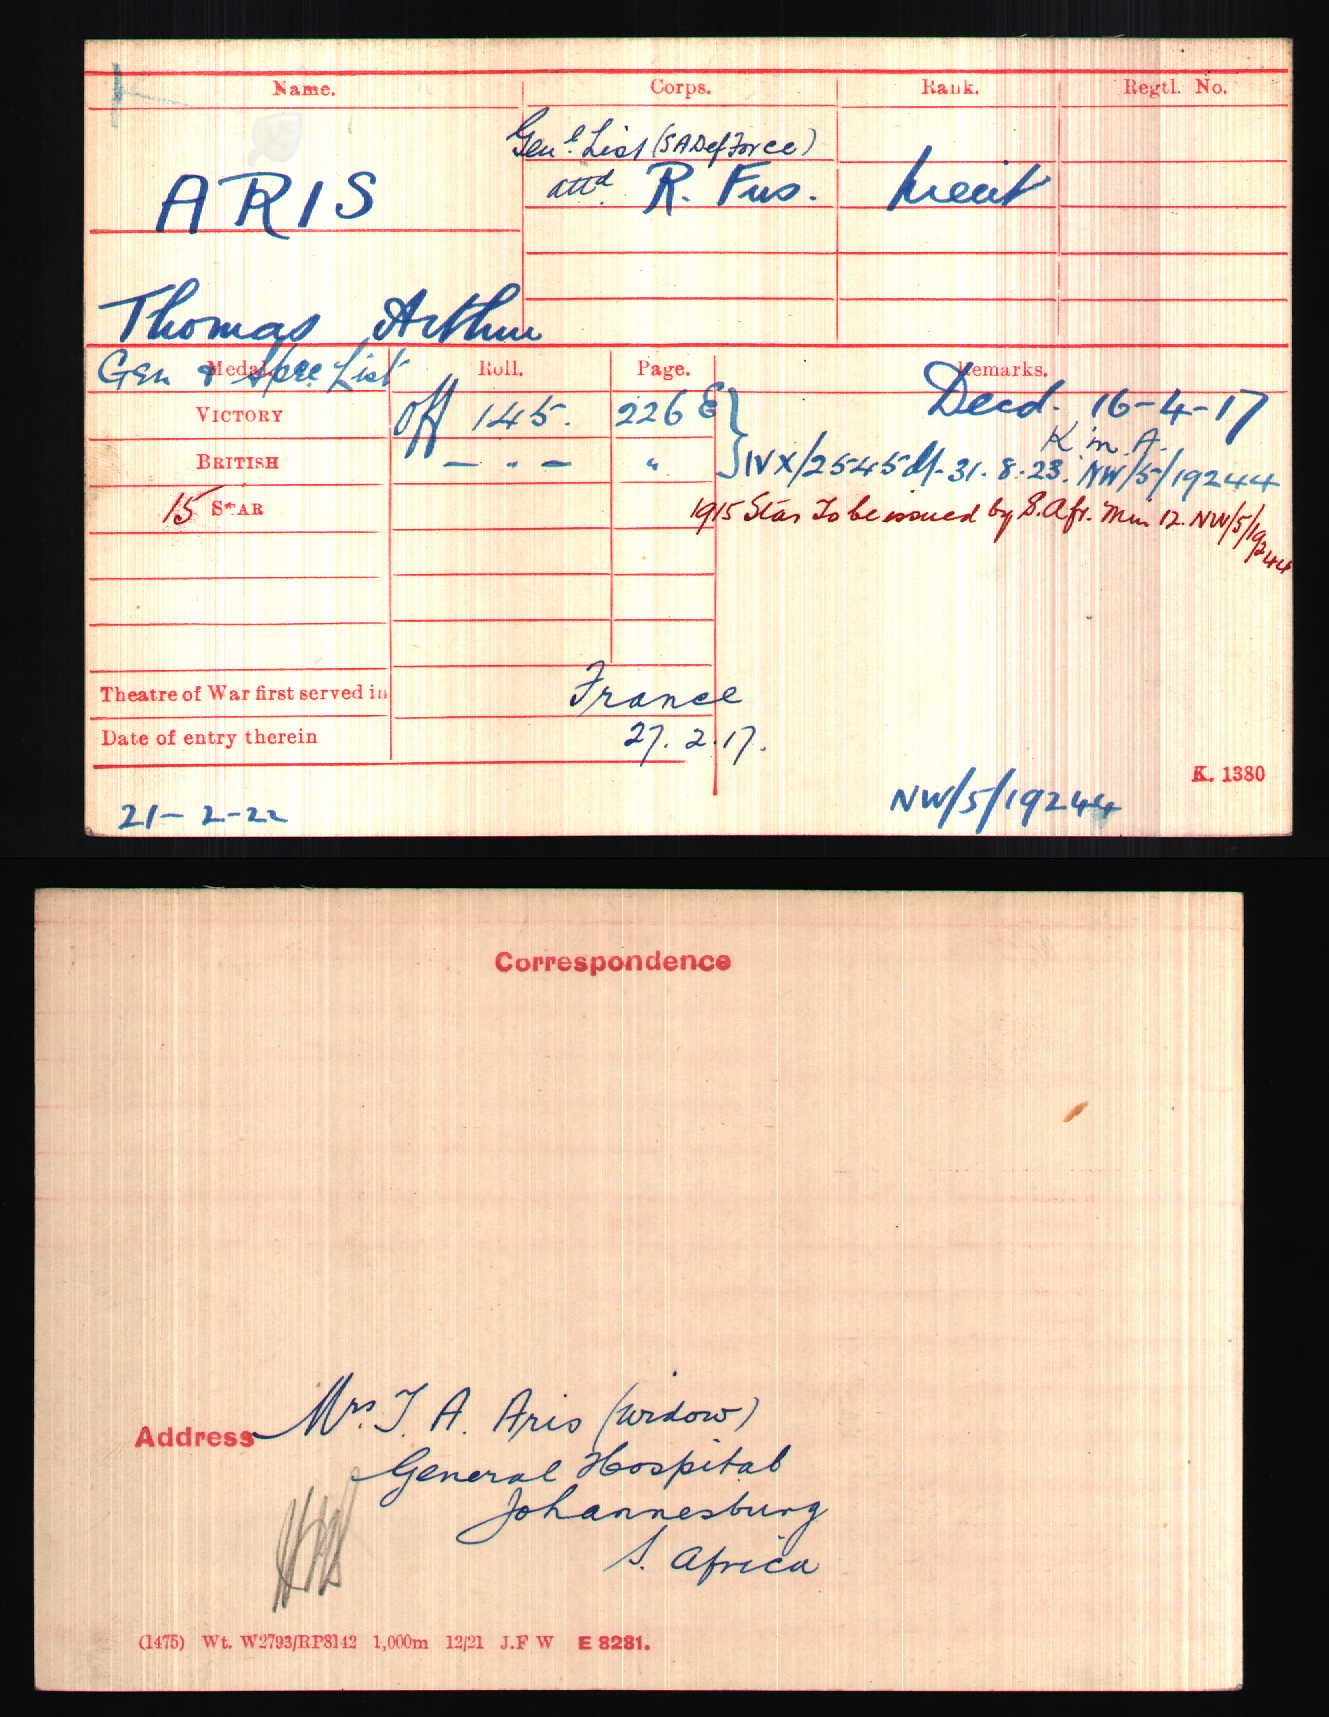 Name. Corps. Rank. Regtl. No.
Genl. List (S A Def Force)
ARIS attd. R. Fus. Lieut
Thomas Arthur
Gen & Spec List
Medal. Roll. Page. Remarks.
VICTORY Off 145. 226 E Decd. 16-4-17
K in A.
BRITISH — " — " IVX/2545 d/- 31.8.23. NW/5/19244
15 STAR 1915 Star To be issued by S. Afr. Min 12. NW/5/19244
Theatre of War first served in France
Date of entry therein 27.2.17.
K. 1380
21-2-22 NW/5/19244
Correspondence
Address Mrs. T. A. Aris (widow)
General Hospital
Johannesburg
S. Africa
(1475) Wt. W2793/RP8142 1,000m 12/21 J.F W E 8281.